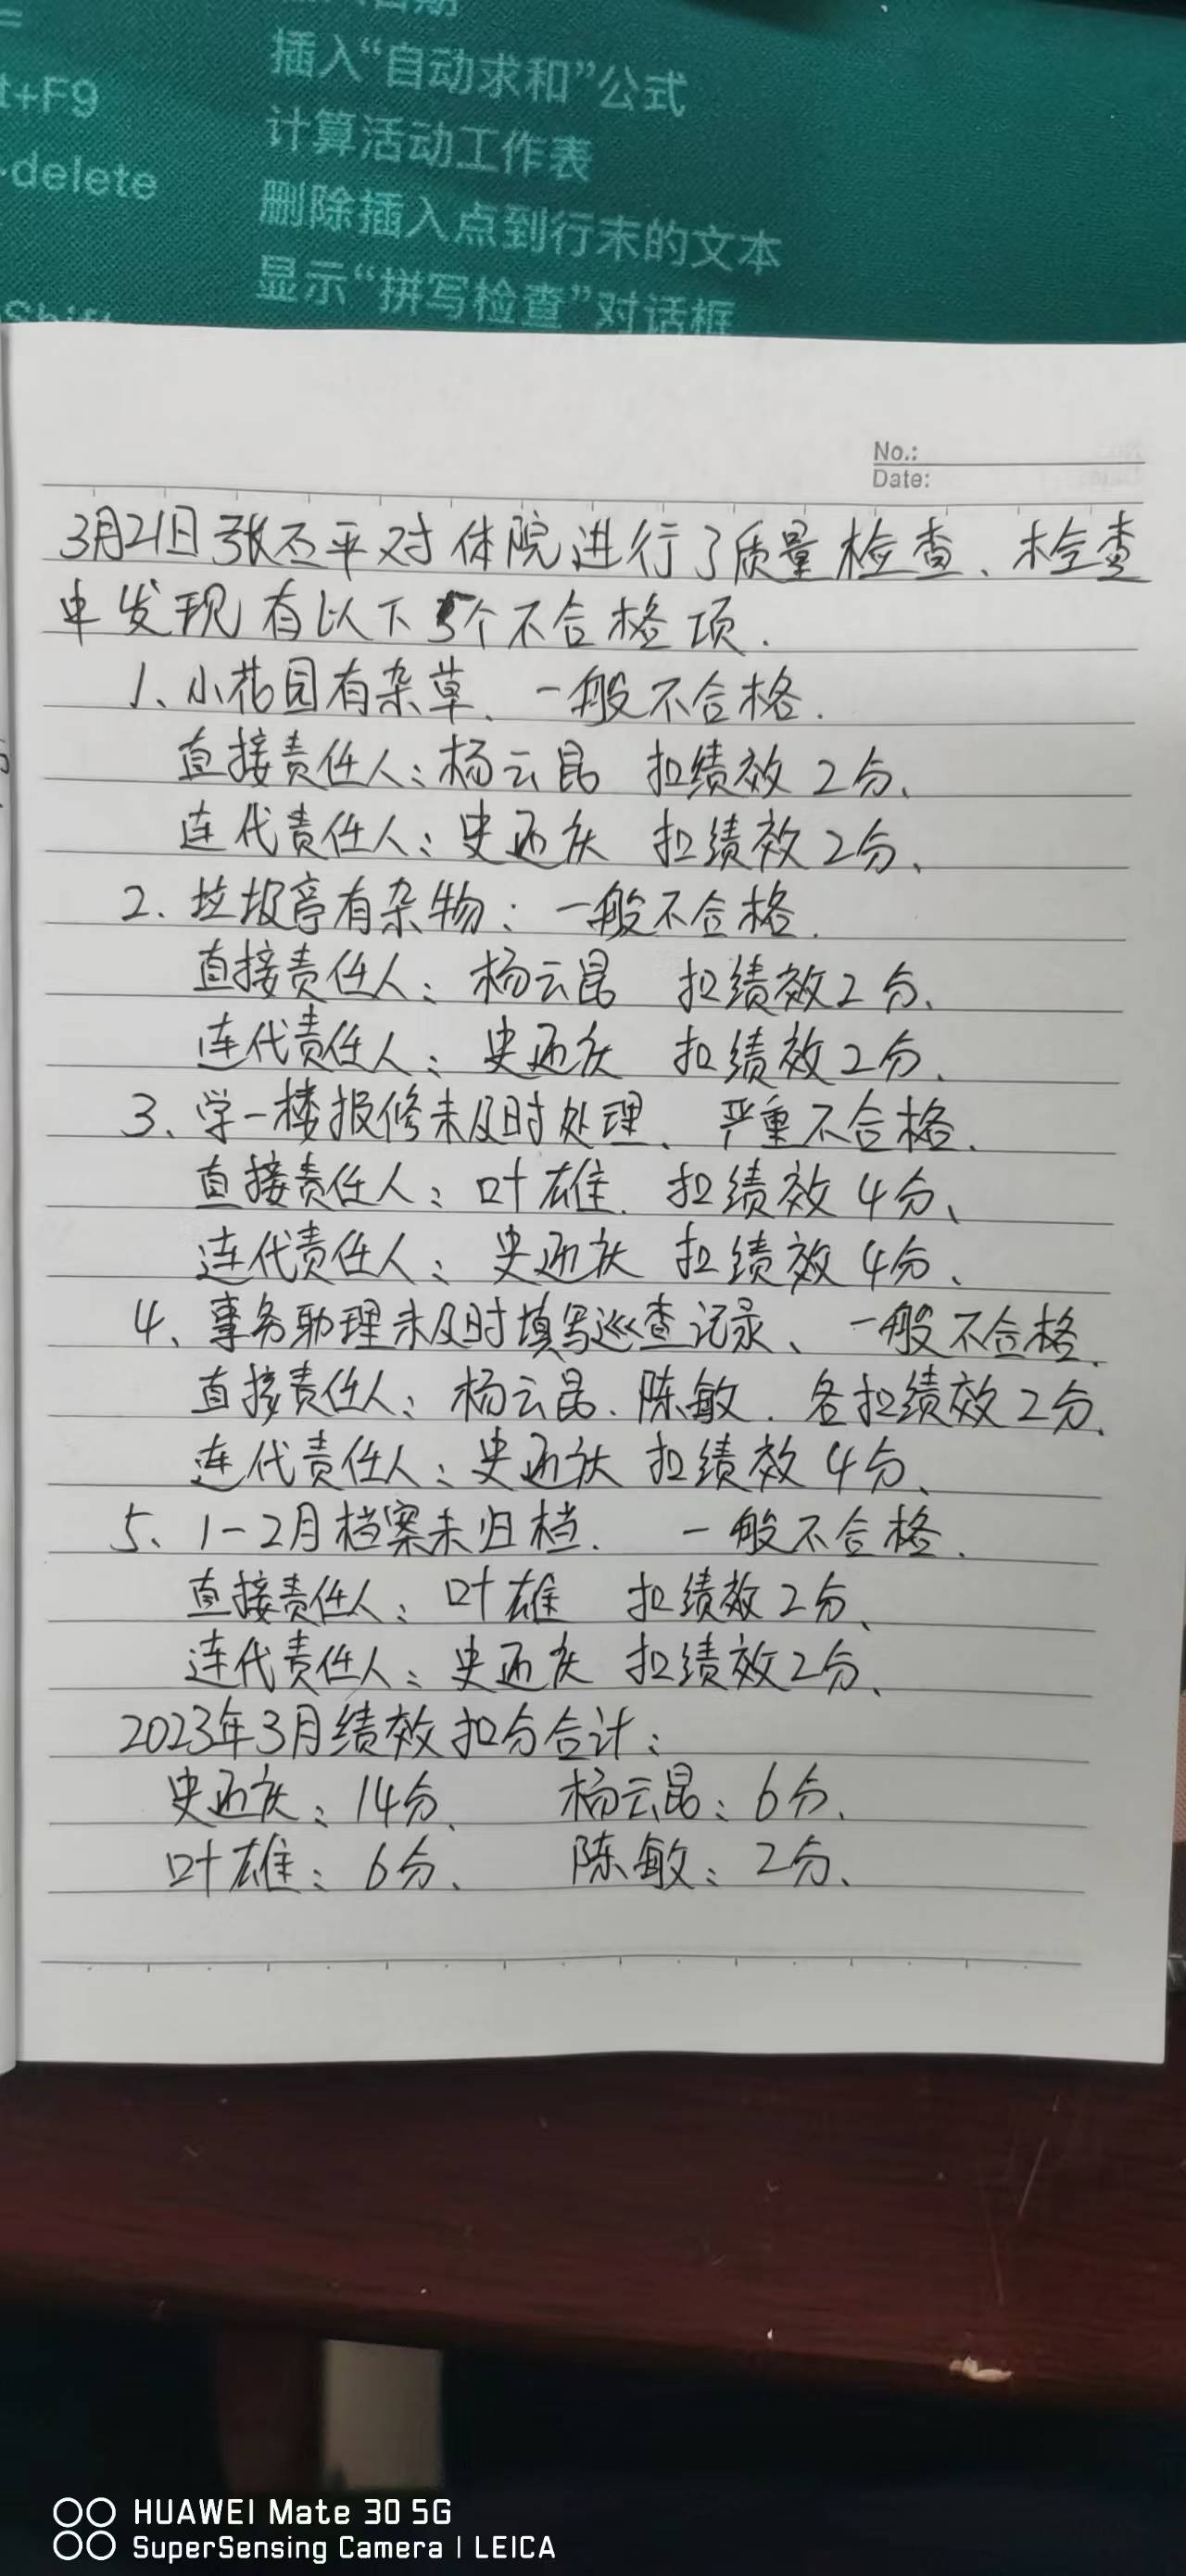 t+F9
插入“自动求和”公式
计算活动工作表
delete
删除插入点到行末的文本
显示“拼写检查”对话框
No.:
Date:
3月21日张丕平对体院进行了质量检查、检查
中发现有以下5个不合格项.
1、小花园有杂草、一般不合格.
直接责任人:杨云昆 扣绩效2分、
连代责任人:史还庆 扣绩效2分、
2、垃圾亭有杂物:一般不合格.
直接责任人:杨云昆 扣绩效2分、
连代责任人:史还庆 扣绩效2分、
3、学一楼报修未及时处理、严重不合格、
直接责任人:叶雄. 扣绩效4分、
连代责任人:史还庆 扣绩效4分、
4、事务助理未及时填写巡查记录、一般不合格、
直接责任人:杨云昆、陈敏. 各扣绩效2分、
连代责任人:史还庆 扣绩效4分、
5、1-2月档案未归档. 一般不合格、
直接责任人:叶雄 扣绩效2分、
连代责任人:史还庆 扣绩效2分、
2023年3月绩效扣分合计:
史还庆:14分、 杨云昆:6分、
叶雄:6分、 陈敏:2分、
HUAWEI Mate 30 5G
SuperSensing Camera | LEICA